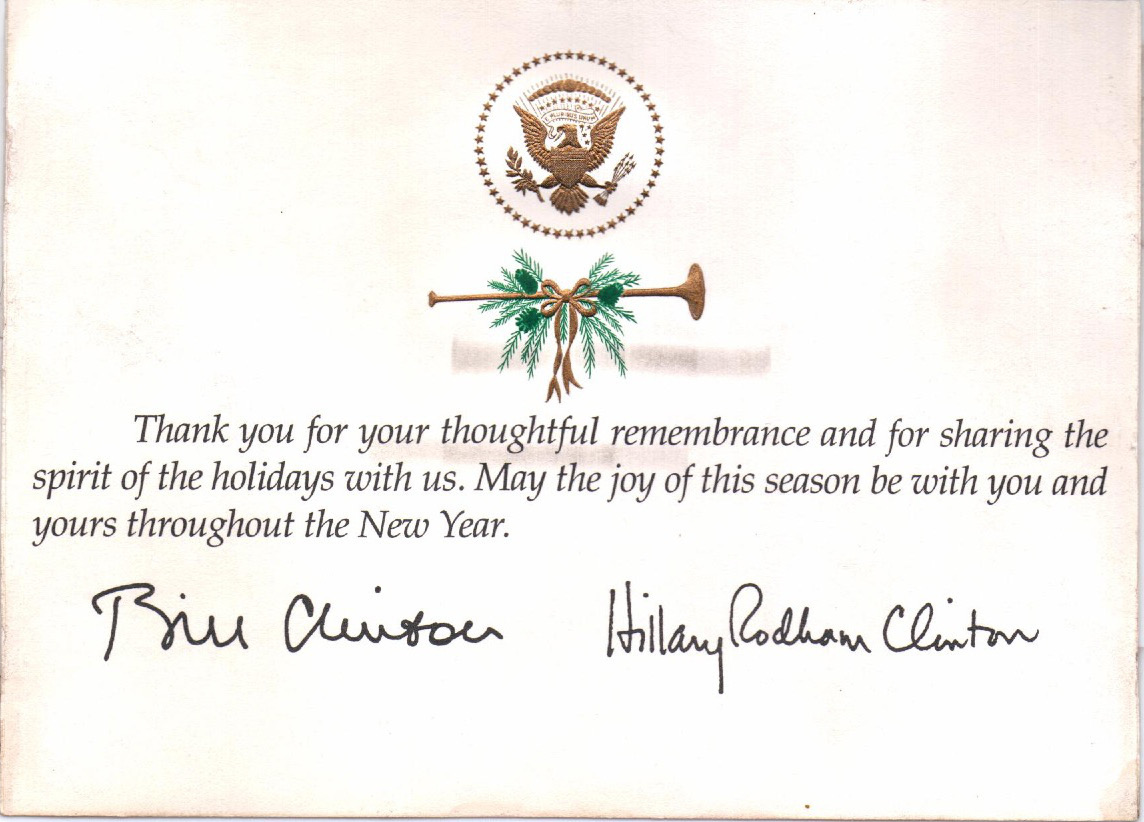 E PLURIBUS UNUM
Thank you for your thoughtful remembrance and for sharing the
spirit of the holidays with us. May the joy of this season be with you and
yours throughout the New Year.
Bill Clinton Hillary Rodham Clinton